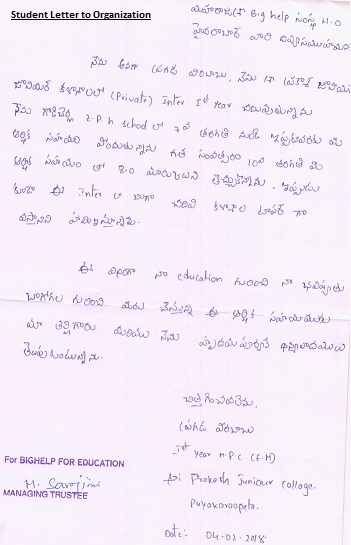 Student Letter to Organization
మహారాజశ్రీ Big help సంస్థ H.O
హైదరాబాద్ వారి దివ్యసముఖమునకు
నేను అనగా ప్రగడ వీరబాబు, నేను శ్రీ ప్రకాశ్ జూనియర్
జూనియర్ కళాశాలలో (Private) Inter Ist year చదువుతున్నాను
నేను Z.P.h school లో 7వ తరగతి నుండి ఇప్పటివరకు మీ
ఆర్థిక సహాయం పొందుతున్నాను గత సంవత్సరం 10వ తరగతి మీ
ఆర్థిక సహాయం తో 8.0 మార్కులని తెచ్చుకొన్నాను. ఇప్పుడు
కూడా ఈ Inter లో బాగా చదివి కళాశాల టాపర్ గా
వస్తానని హామిఇస్తున్నాను.
ఈ విధంగా నా education గురించి నా భవిష్యత్తు
బాగోగుల గురించి మీరు చేస్తున్న ఈ ఆర్థిక సహాయమునకు
మా తల్లిగారు మరియు నేను హృదయపూర్వక ధన్యవాదములు
తెలుపుకుంటున్నాను.
చిత్తగించవలెను,
ప్రగడ వీరబాబు
Ist year M.P.C (E.M)
Sri Prakash Juniour collage.
Payakaraopeta.
Date: 04-02-2018
For BIGHELP FOR EDUCATION
M. Sarojini
MANAGING TRUSTEE